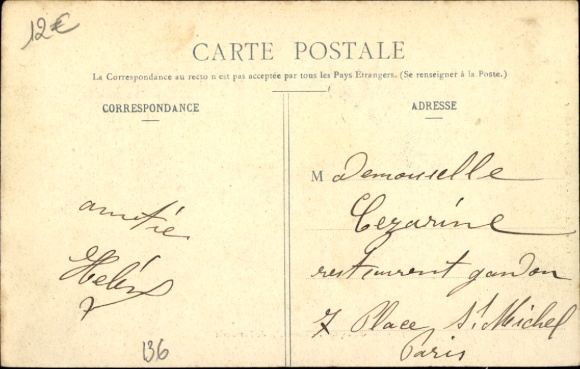 12€
CARTE POSTALE
La Correspondance au recto n'est pas acceptée par tous les Pays Etrangers. (Se renseigner à la Poste.)
CORRESPONDANCE
ADRESSE
Mademoiselle
Cezarine
restaurent gandon
7 Place St Michel
Paris
amitié
Helène
136